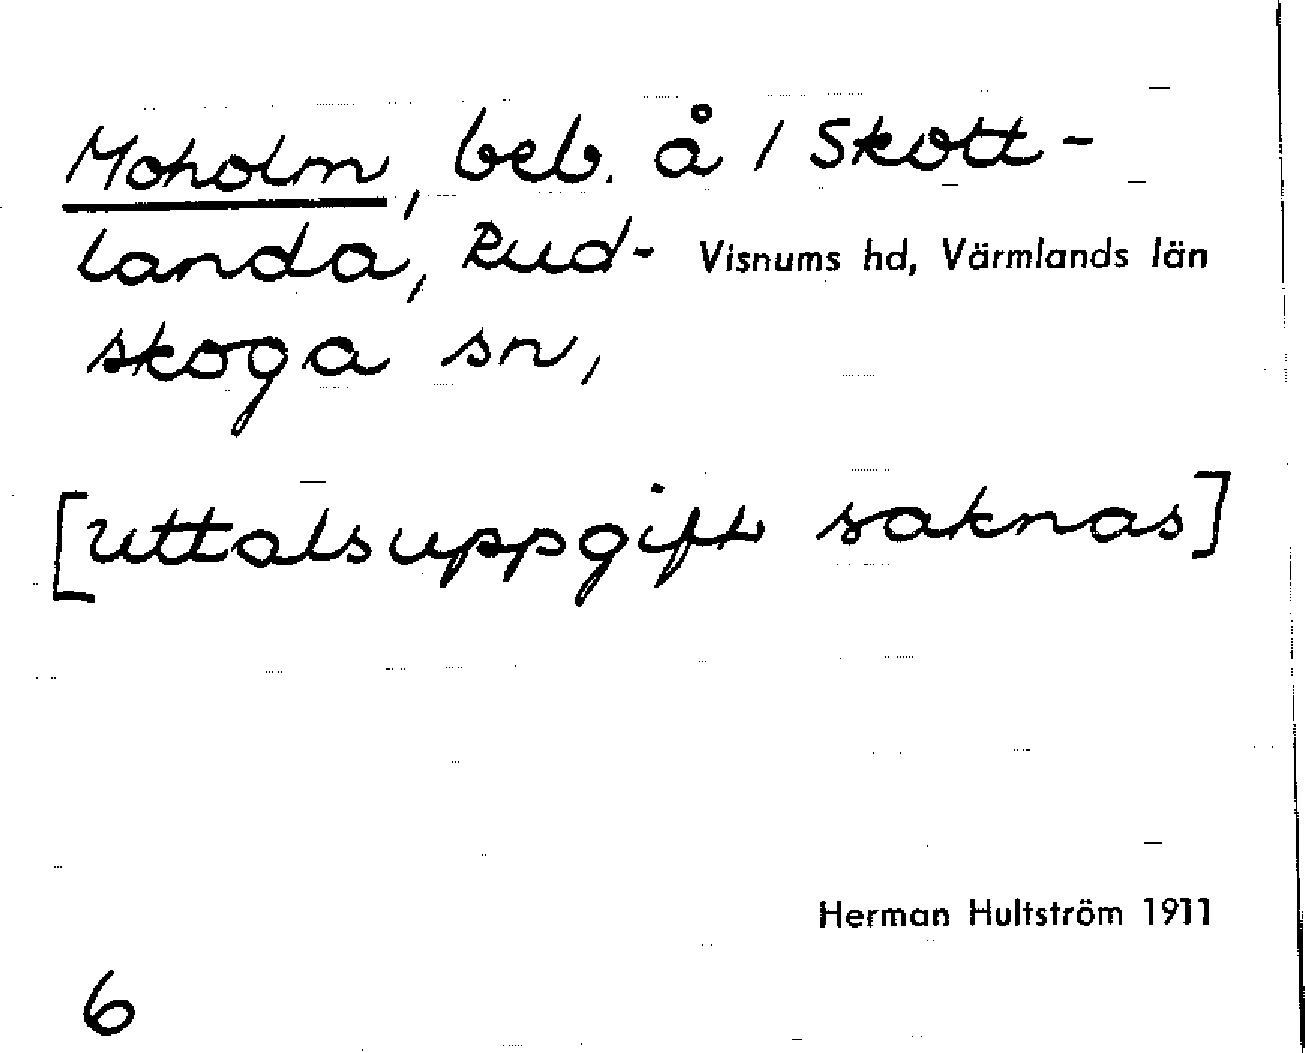 Moholm, beb. å 1 Skott-
landa, Rud- Visnums hd, Värmlands län
skoga sn,
[uttalsuppgift saknas]
Herman Hultström 1911
6